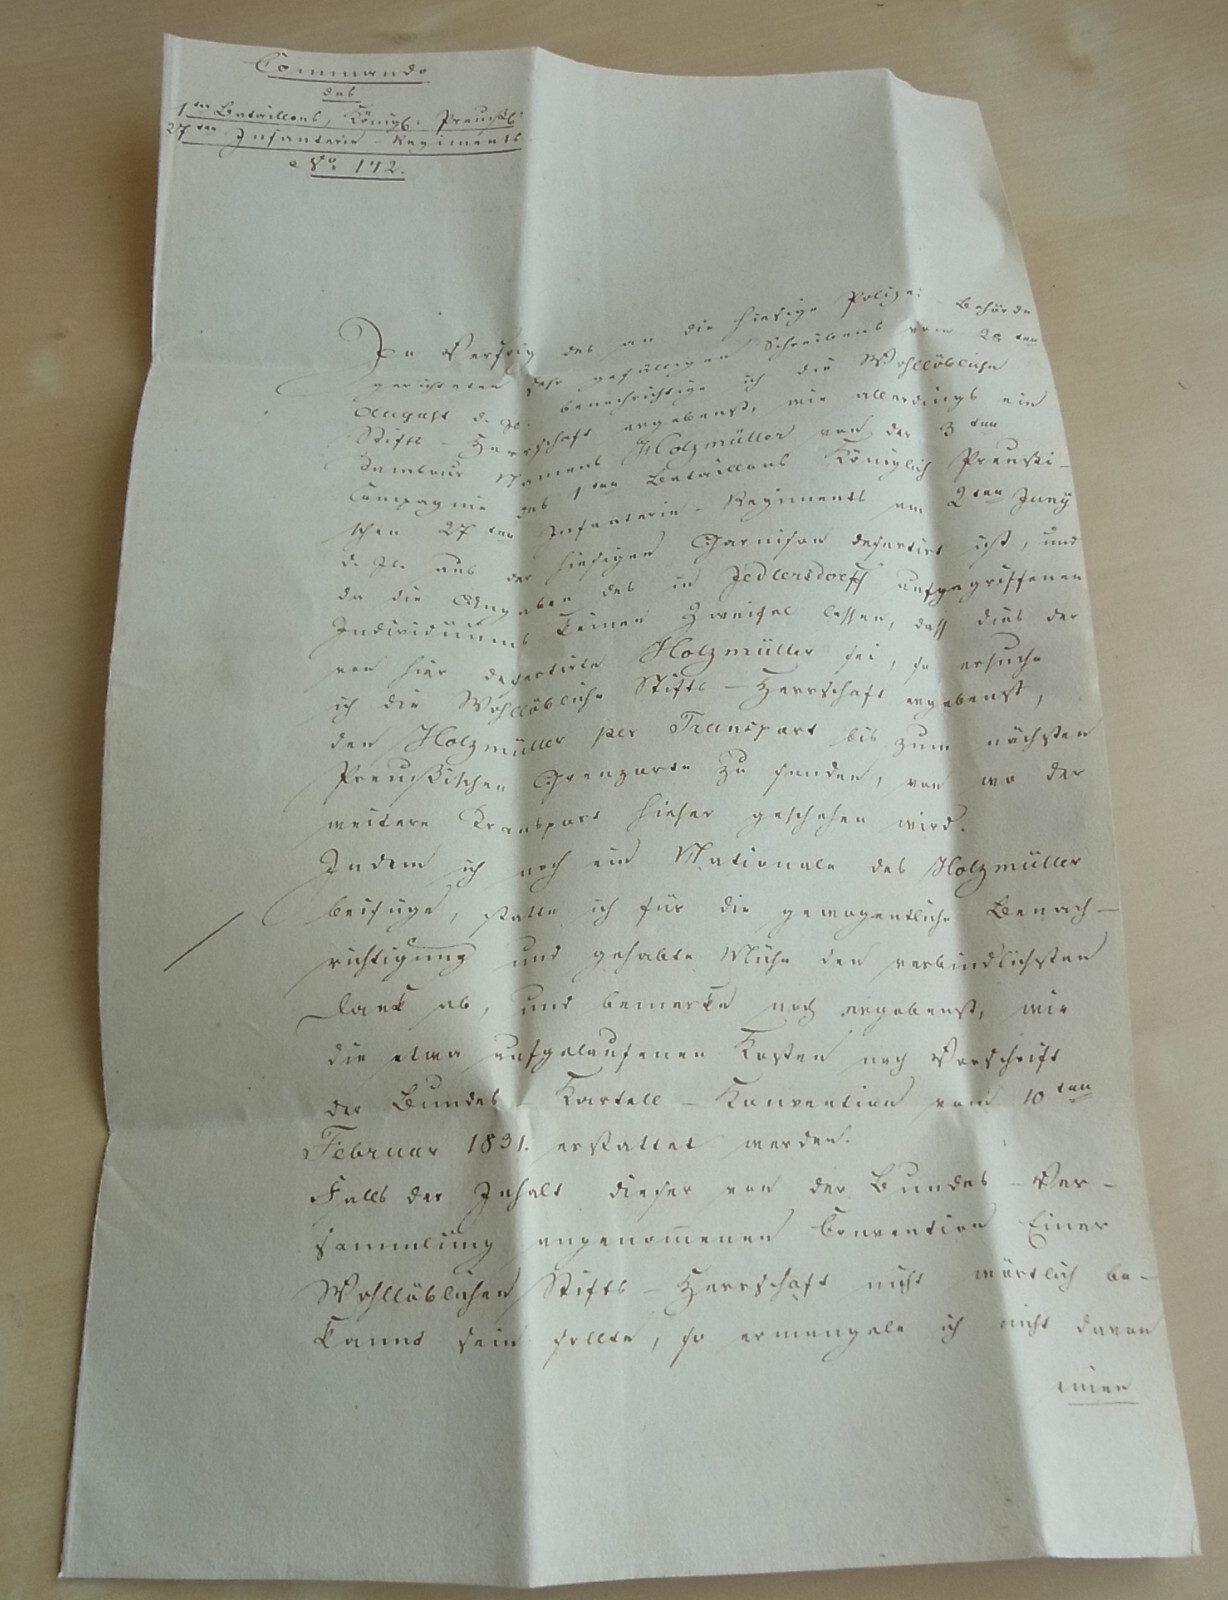 Commando
des
1ten Bataillons, Königl: Preuß:
27ten Infanterie-Regiments
No: 172.
In Verfolg des an die hiesige Polizei-Behörde
gerichteten sehr gefälligen Schreibens vom 28ten
August d. Js. benachrichtige ich die Wohllöbliche
Stifts-Herrschaft ergebenst, wie allerdings ein
Tambour Namens Holzmüller von der 3ten
Compagnie des 1ten Bataillons Königlich Preussi-
schen 27ten Infanterie-Regiments am 2ten Juny
d. Js. aus der hiesigen Garnison desertirt ist, und
da die Angaben des in Jedlersdorff aufgegriffenen
Individuums keinen Zweifel lassen, dass dies der
von hier desertirte Holzmüller sei, so ersuche
ich die Wohllöbliche Stifts-Herrschaft ergebenst,
den Holzmüller per Transport bis zum nächsten
Preußischen Grenzorte zu senden, von wo der
weitere Transport hieher geschehen wird.
Indem ich noch ein Nationale des Holzmüller
beifüge, statte ich für die gewogentliche Benach-
richtigung und gehabte Mühe den verbindlichsten
Dank ab, und bemerke noch ergebenst, wie
die etwa aufgelaufenen Kosten nach Vorschrift
der Bundes-Kartell-Konvention vom 10ten
Februar 1831. erstattet werden.
Falls der Inhalt dieser von der Bundes-Ver-
sammlung angenommenen Convention Einer
Wohllöblichen Stifts-Herrschaft nicht wörtlich be-
kannt sein sollte, so ermangele ich nicht davon
einen